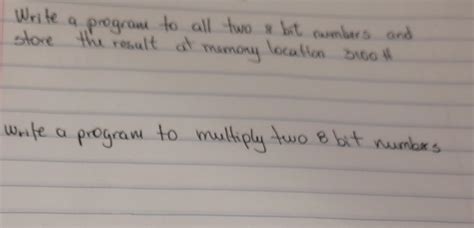 Write a program to all two 8 bit numbers and
store the result at memory location 3100 H
write a program to multiply two 8 bit numbers